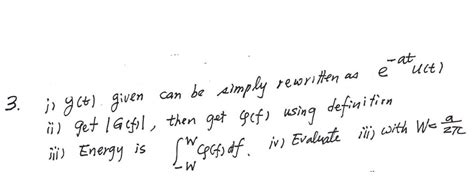 3. i) y(t) given can be simply rewritten as e^{-at} u(t)
ii) get |G(f)|, then get φ(f) using definition
iii) Energy is ∫_{-W}^{W} φ(f) df. iv) Evaluate iii) with W = a/2π